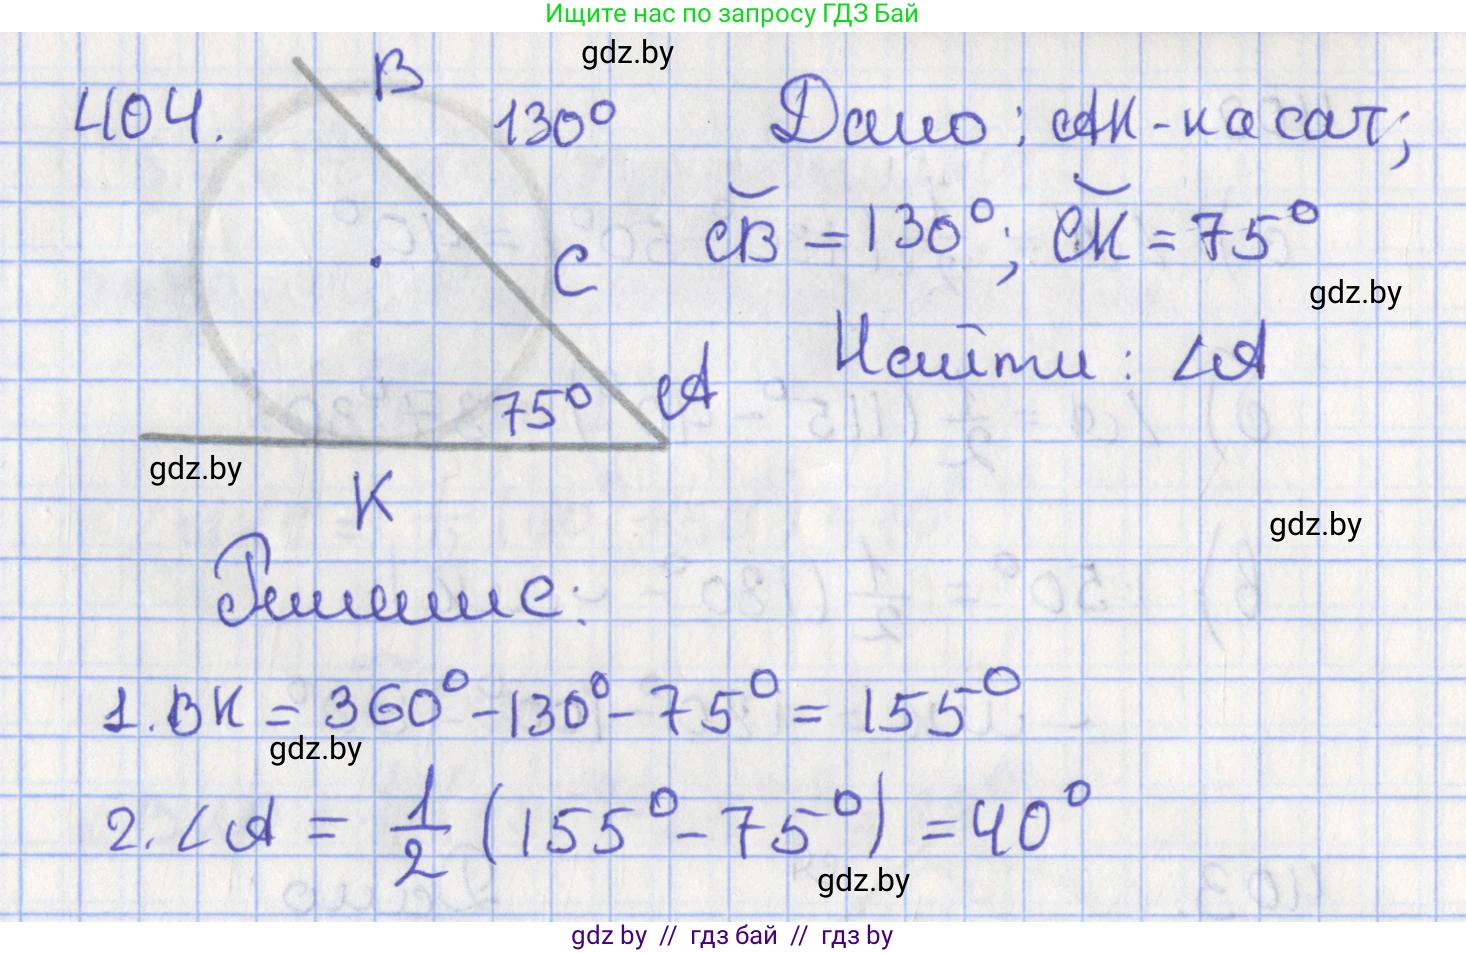 Ищите нас по запросу ГДЗ Бай
gdz.by
404.
B
130°
Дано: AK - касат;
C
CB = 130°; CK = 75°
gdz.by
Найти: ∠A
75°
A
gdz.by
K
gdz.by
Решение:
1. BK = 360° - 130° - 75° = 155°
gdz.by
2. ∠A = 1/2 (155° - 75°) = 40°
gdz.by
gdz by // гдз бай // гдз by